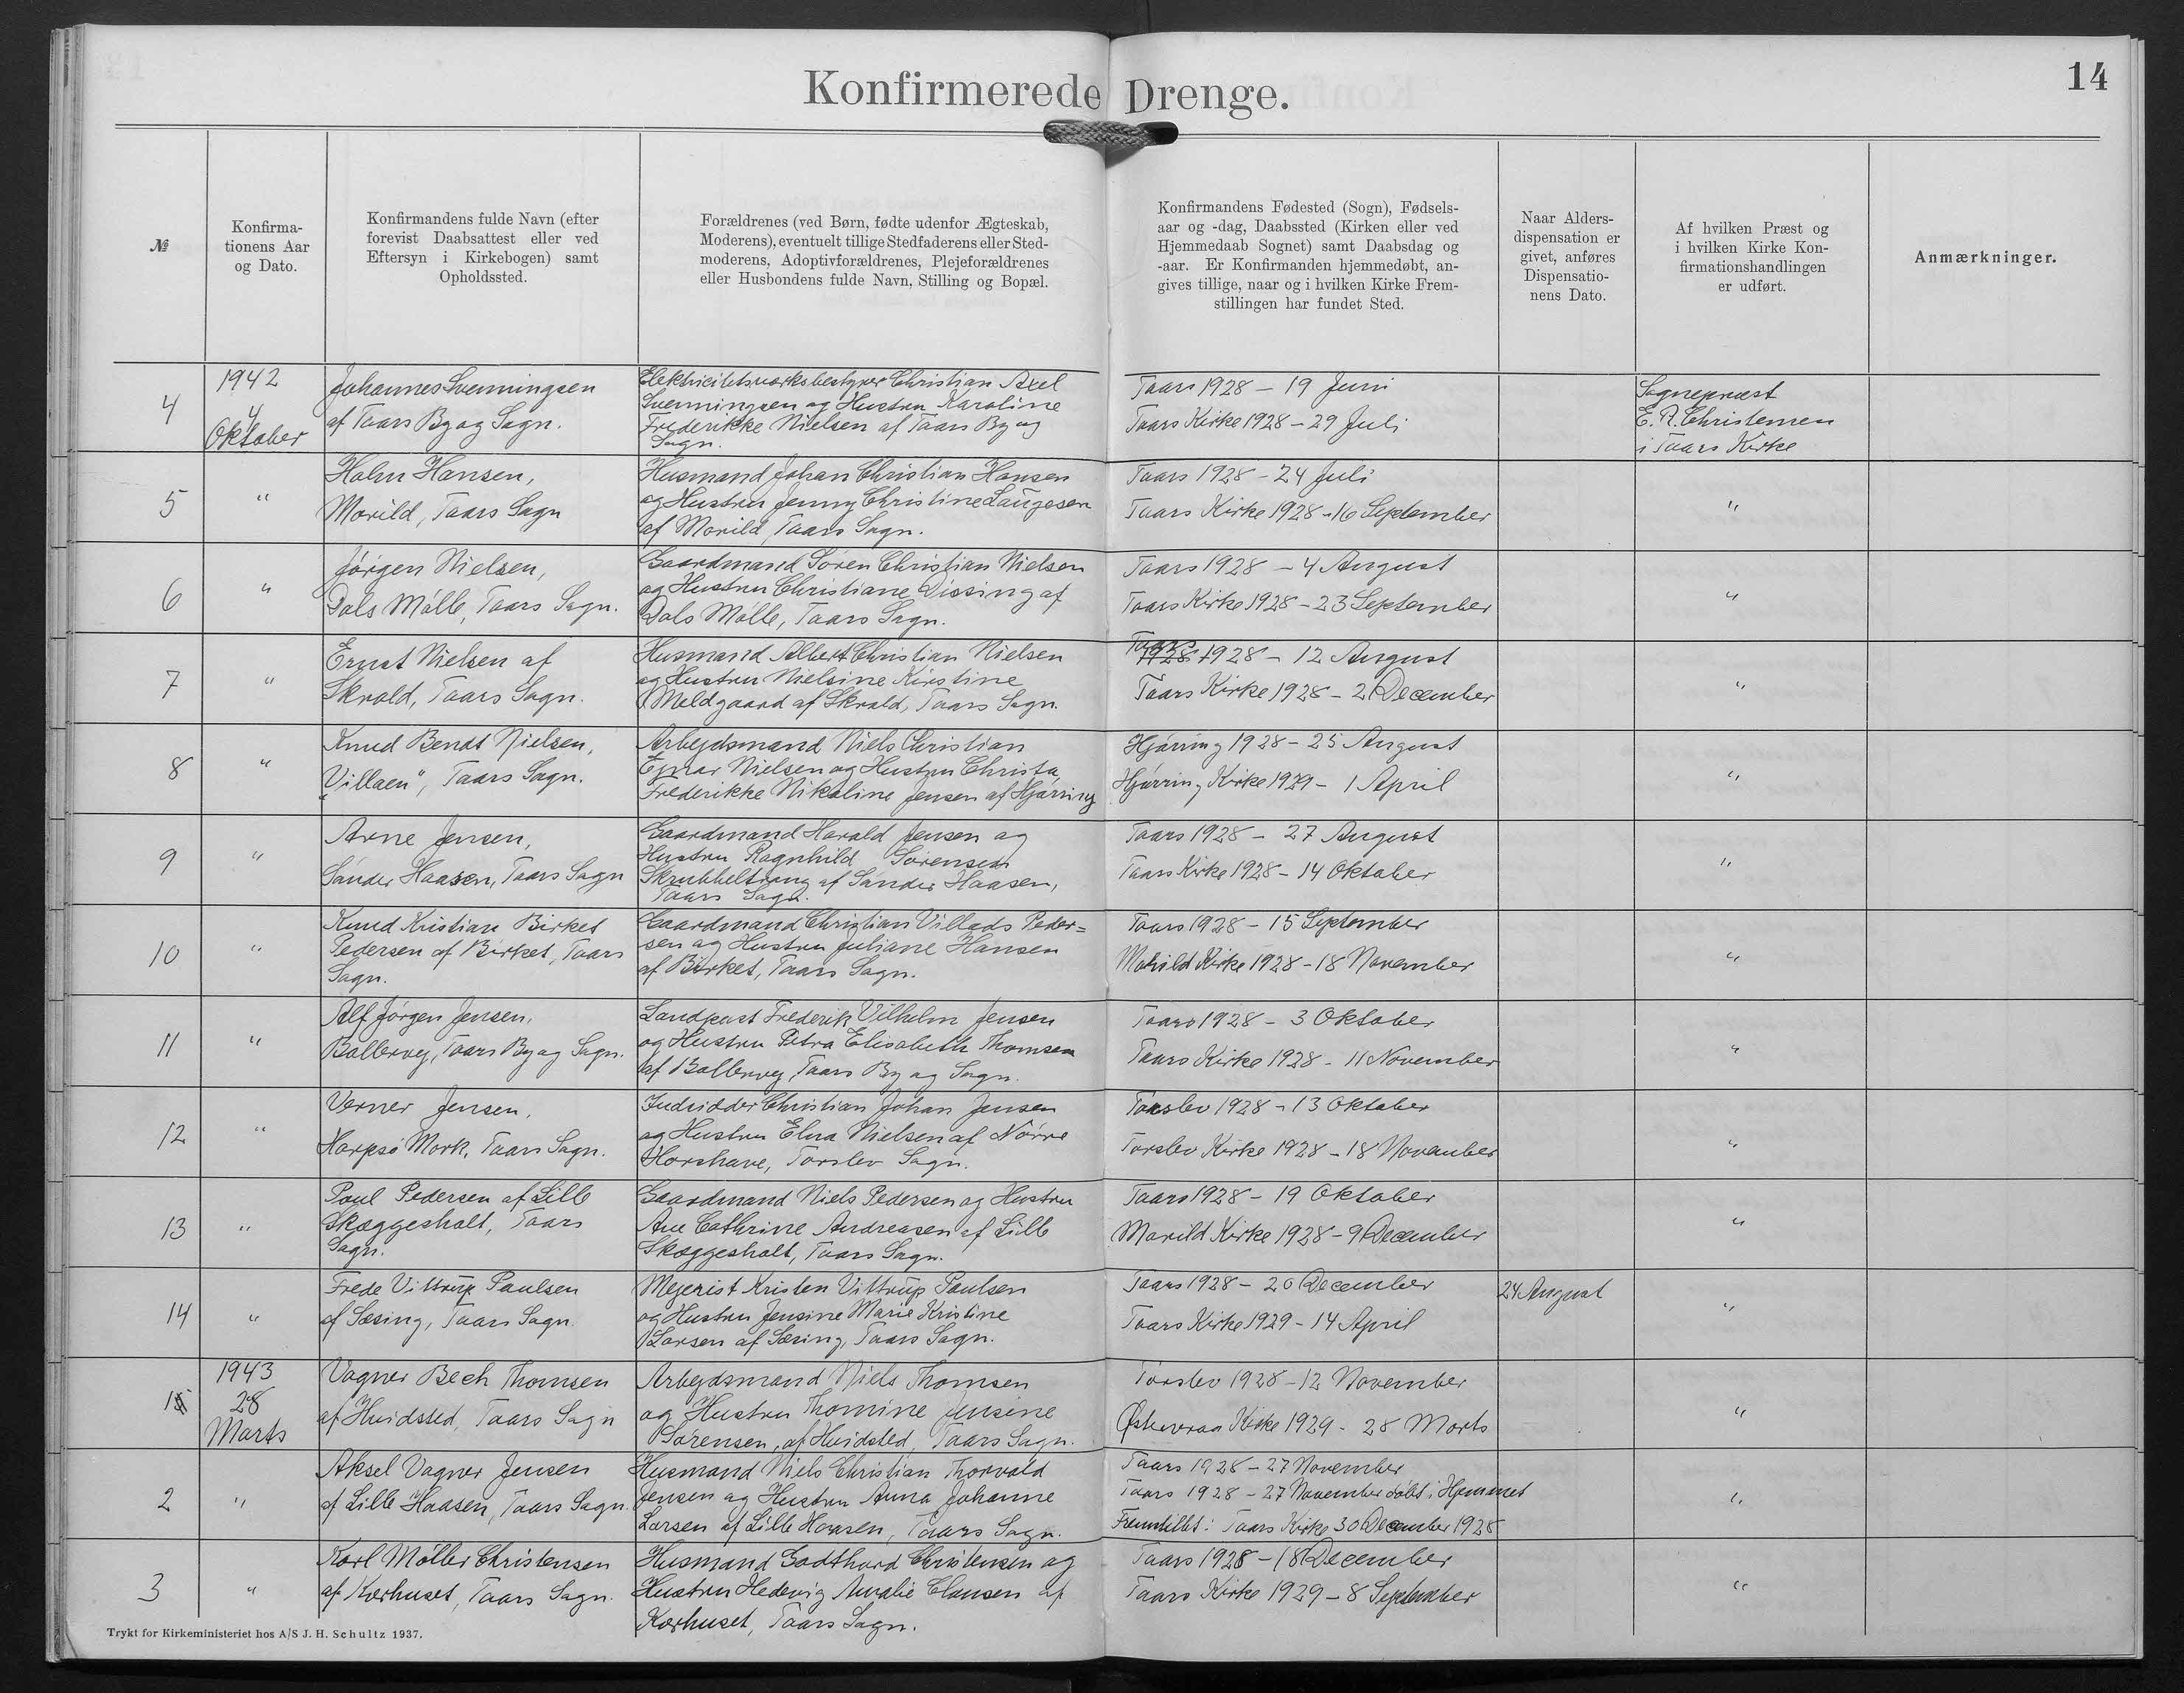 Konfirmerede Drenge.
14
№
Konfirma-
tionens Aar
og Dato.
Konfirmandens fulde Navn (efter
forevist Daabsattest eller ved
Eftersyn i Kirkebogen) samt
Opholdssted.
Forældrenes (ved Børn, fødte udenfor Ægteskab,
Moderens), eventuelt tillige Stedfaderens eller Sted-
moderens, Adoptivforældrenes, Plejeforældrenes
eller Husbondens fulde Navn, Stilling og Bopæl.
Konfirmandens Fødested (Sogn), Fødsels-
aar og -dag, Daabssted (Kirken eller ved
Hjemmedaab Sognet) samt Daabsdag og
-aar. Er Konfirmanden hjemmedøbt, an-
gives tillige, naar og i hvilken Kirke Frem-
stillingen har fundet Sted.
Naar Alders-
dispensation er
givet, anføres
Dispensatio-
nens Dato.
Af hvilken Præst og
i hvilken Kirke Kon-
firmationshandlingen
er udført.
Anmærkninger.
4
1942
4
Oktober
Johannes Svenningsen
af Taars By og Sogn.
Elektricitetsværksbestyrer Christian Axel
Svenningsen og Hustru Karoline
Frederikke Nielsen af Taars By og
Sogn.
Taars 1928 – 19 Juni
Taars Kirke 1928 – 29 Juli
Sognepræst
E. R. Christensen
i Taars Kirke
5
"
Holm Hansen,
Morild, Taars Sogn
Husmand Johan Christian Hansen
og Hustru Jenny Christine Laugesen
af Morild, Taars Sogn.
Taars 1928 – 24 Juli
Taars Kirke 1928 – 16 September
"
6
"
Jörgen Nielsen,
Dals Mölle, Taars Sogn.
Gaardmand Sören Christian Nielsen
og Hustru Christiane Dissing af
Dals Mölle, Taars Sogn.
Taars 1928 – 4 August
Taars Kirke 1928 – 23 September
"
7
"
Ernst Nielsen af
Skrold, Taars Sogn.
Husmand Albert Christian Nielsen
og Hustru Nielsine Kirstine
Meldgaard af Skrold, Taars Sogn.
Taars
1928 1928 – 12 August
Taars Kirke 1928 – 2 December
"
8
"
Knud Bendt Nielsen,
"Villaen", Taars Sogn.
Arbejdsmand Niels Christian
Ejnar Nielsen og Hustru Christa
Frederikke Nikoline Jensen af Hjörring
Hjörring 1928 – 25 August
Hjörring Kirke 1929 – 1 April
"
9
"
Arne Jensen,
Sönder Haasen, Taars Sogn
Gaardmand Harald Jensen og
Hustru Ragnhild Sörensen
Skrubbeltrang af Sönder Haasen,
Taars Sogn.
Taars 1928 – 27 August
Taars Kirke 1928 – 14 Oktober
"
10
"
Knud Kristian Birket
Pedersen af Birket, Taars
Sogn.
Gaardmand Christian Villads Peder=
sen og Hustru Juliane Hansen
af Birket, Taars Sogn.
Taars 1928 – 15 September
Morild Kirke 1928 – 18 November
"
11
"
Alf Jörgen Jensen,
Bollervej, Taars By og Sogn.
Landpost Frederik Vilhelm Jensen
og Hustru Petra Elisabeth Thomsen
af Bollervej, Taars By og Sogn.
Taars 1928 – 3 Oktober
Taars Kirke 1928 – 11 November
"
12
"
Verner Jensen,
Harpsö Mark, Taars Sogn.
Indsidder Christian Johan Jensen
og Hustru Elna Nielsen af Nörre
Horshave, Torslev Sogn.
Torslev 1928 – 13 Oktober
Torslev Kirke 1928 – 18 November
"
13
"
Poul Pedersen af Lille
Skæggesholt, Taars
Sogn.
Gaardmand Niels Pedersen og Hustru
Ane Cathrine Andreasen af Lille
Skæggesholt, Taars Sogn.
Taars 1928 – 19 Oktober
Morild Kirke 1928 – 9 December
"
14
"
Frede Vittrup Poulsen
af Sæsing, Taars Sogn.
Mejerist Kristen Vittrup Poulsen
og Hustru Jensine Marie Kristine
Larsen af Sæsing, Taars Sogn.
Taars 1928 – 20 December
Taars Kirke 1929 – 14 April
24 August
"
1
1943
28
Marts
Vagner Bech Thomsen
af Hvidsted, Taars Sogn
Arbejdsmand Niels Thomsen
og Hustru Thomine Jensine
Sörensen, af Hvidsted, Taars Sogn.
Torslev 1928 – 12 November
Østervraa Kirke 1929 – 28 Marts
"
2
"
Aksel Vagner Jensen
af Lille Haasen, Taars Sogn.
Husmand Niels Christian Thorvald
Jensen og Hustru Anna Johanne
Larsen af Lille Haasen, Taars Sogn.
Taars 1928 – 27 November
Taars 1928 – 27 November döbt i Hjemmet
Fremstillet i Taars Kirke 30 December 1928
"
3
"
Karl Möller Christensen
af Kærhuset, Taars Sogn.
Husmand Godthard Christensen og
Hustru Hedevig Amalie Clausen af
Kærhuset, Taars Sogn.
Taars 1928 – 18 December
Taars Kirke 1929 – 8 September
"
Trykt for Kirkeministeriet hos A/S J. H. Schultz 1937.